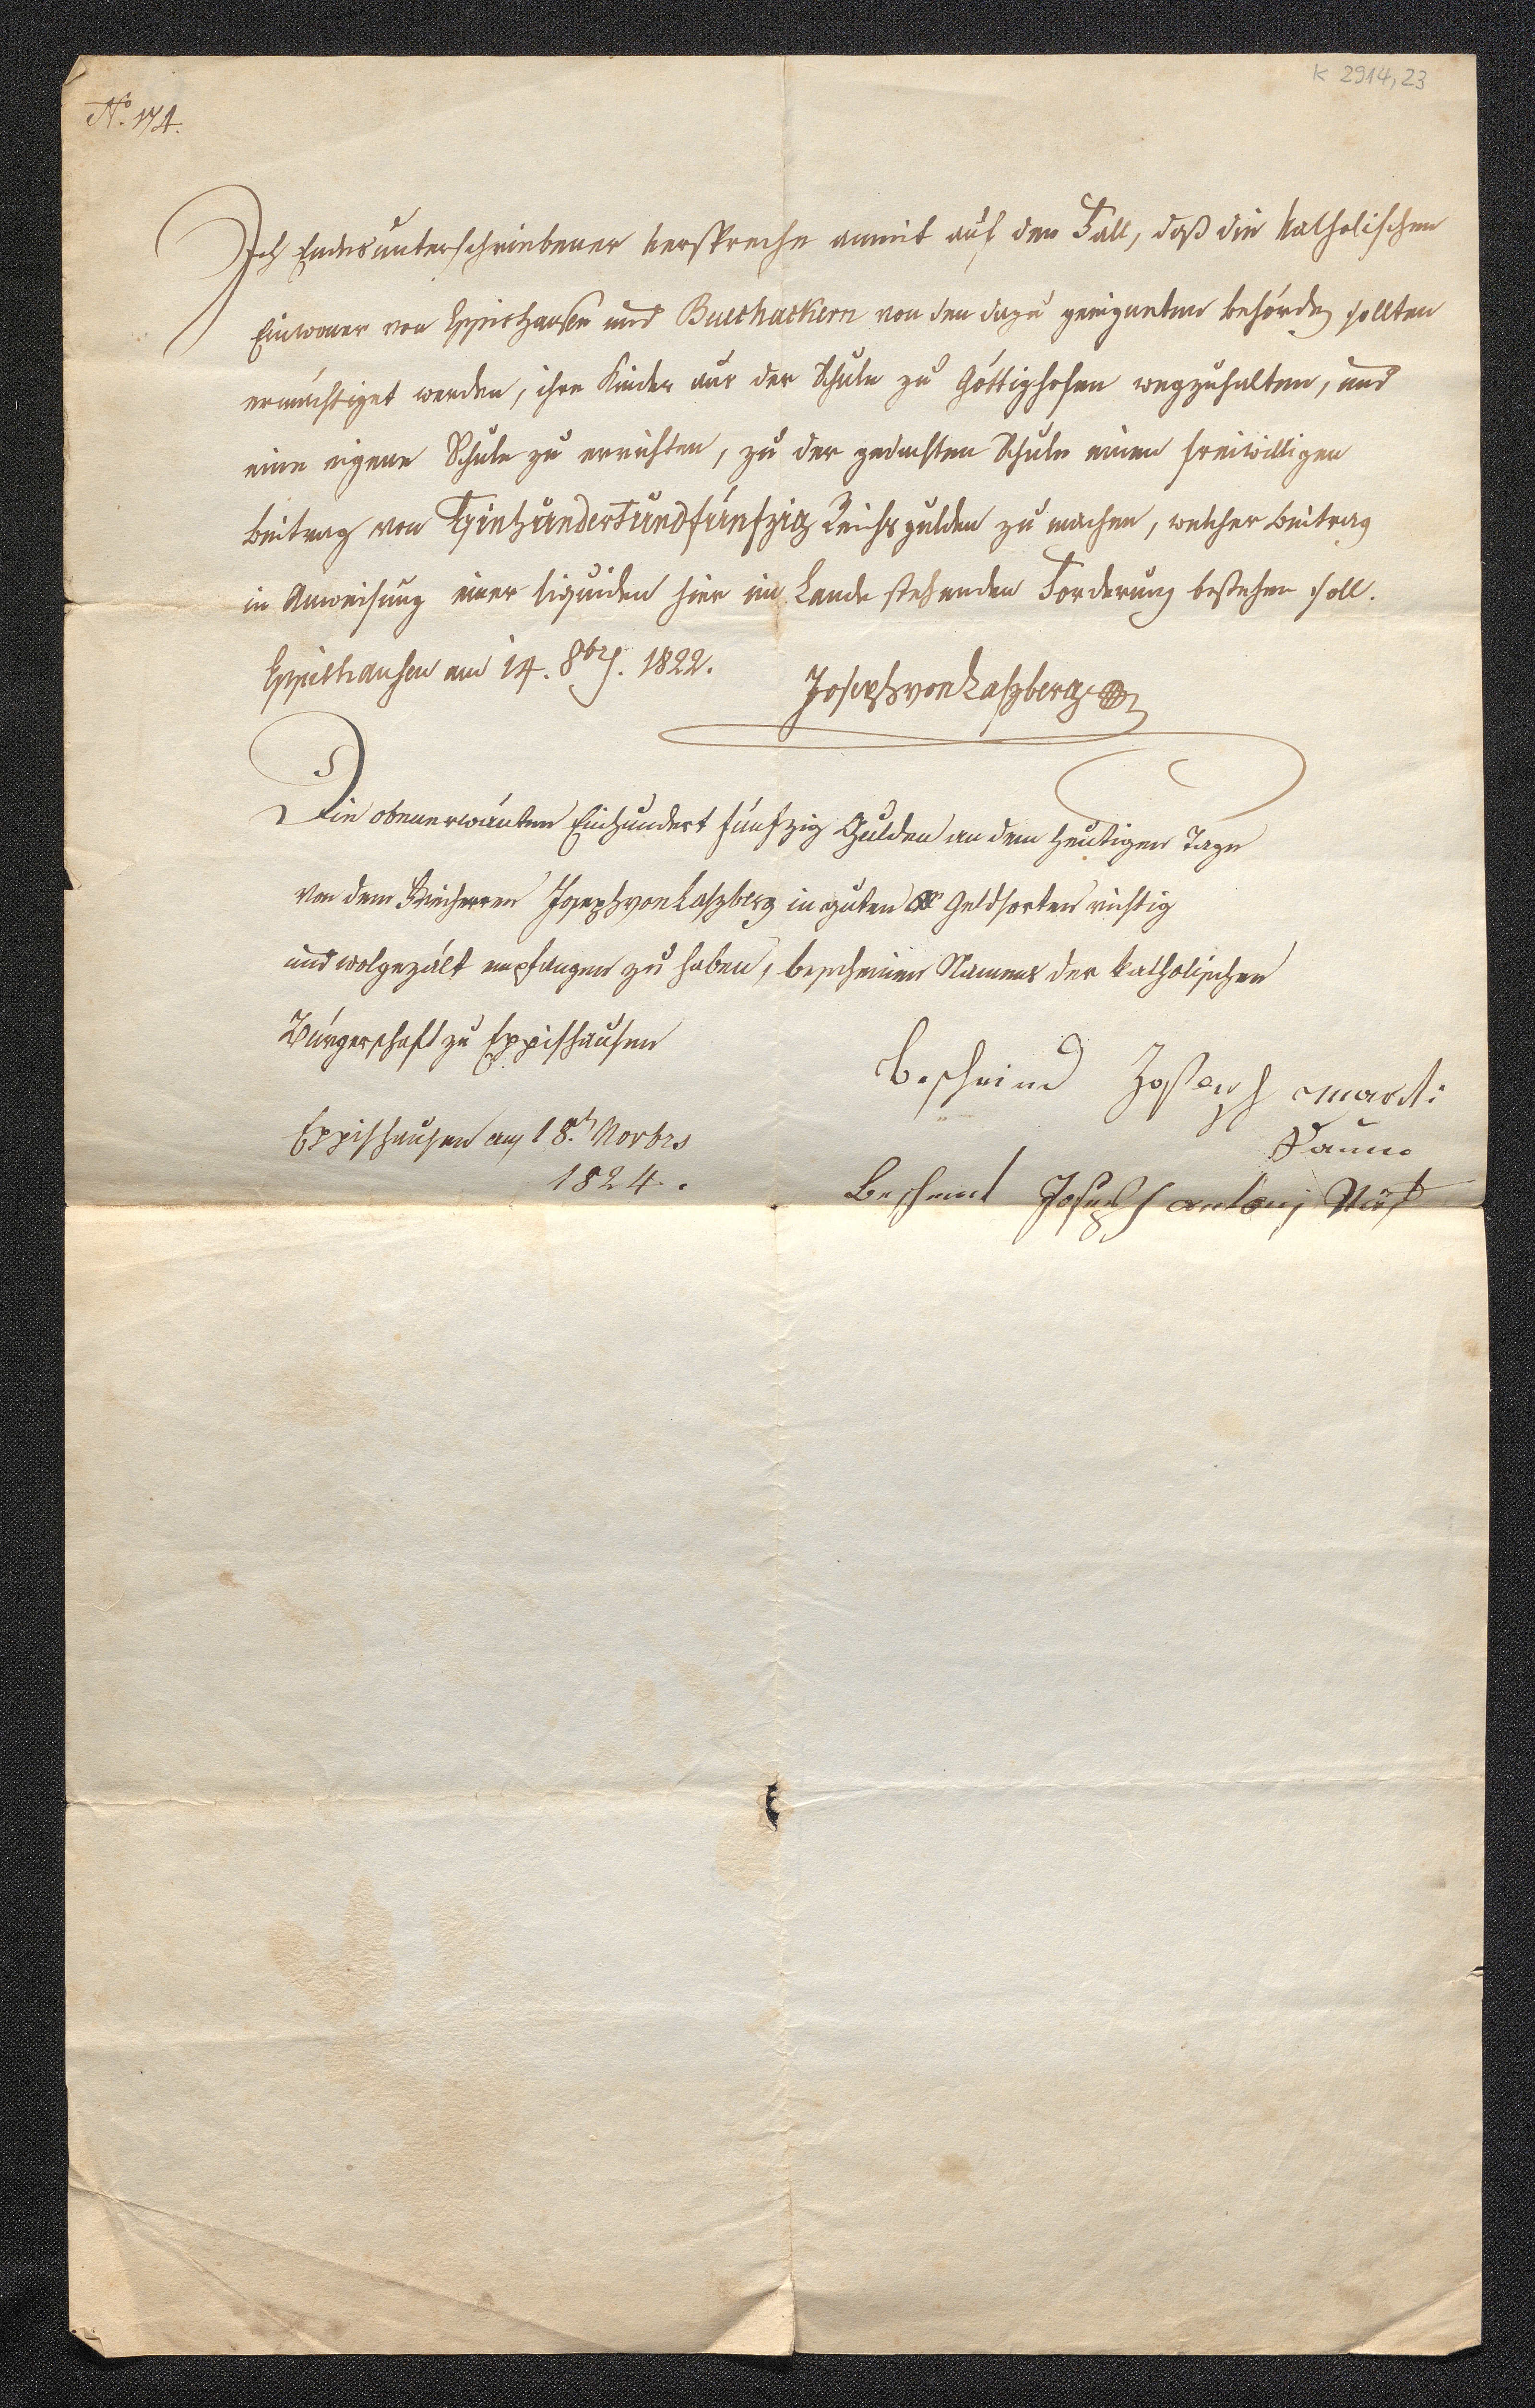 K 2914,23
No. 174.
Ich Endesunterschriebener verspreche anmit auf den Fall, daß die katholischen
Einwoner von Eppishausen und Buechackern von den dazu geeigneten behörden sollten
ermächtiget werden, ihre Kinder aus der Schule zu Göttighofen wegzuhalten, und
eine eigene Schule zu errichten, zu der gedachten Schule einen freiwilligen
beitrag von Einhundertundfünfzig Reichsgulden zu machen, welcher beitrag
in Anweisung einer liquiden hier im Lande stehenden Forderung bestehen soll.
Eppishausen am 14. 8brs. 1822.
Joseph von Laszberg
Die obenerwänten Einhundert fünfzig Gulden an dem heutigen Tage
von dem Freiherren Joseph von Laszberg in guten Geldsorten richtig
und wolgezält empfangen zu haben, bescheinen Namens der katholischen
Bürgerschaft zu Eppishausen
Bescheind Joseph marti
Eppishausen am 18. Novbrs
1824.
Bescheint Joseph antoni